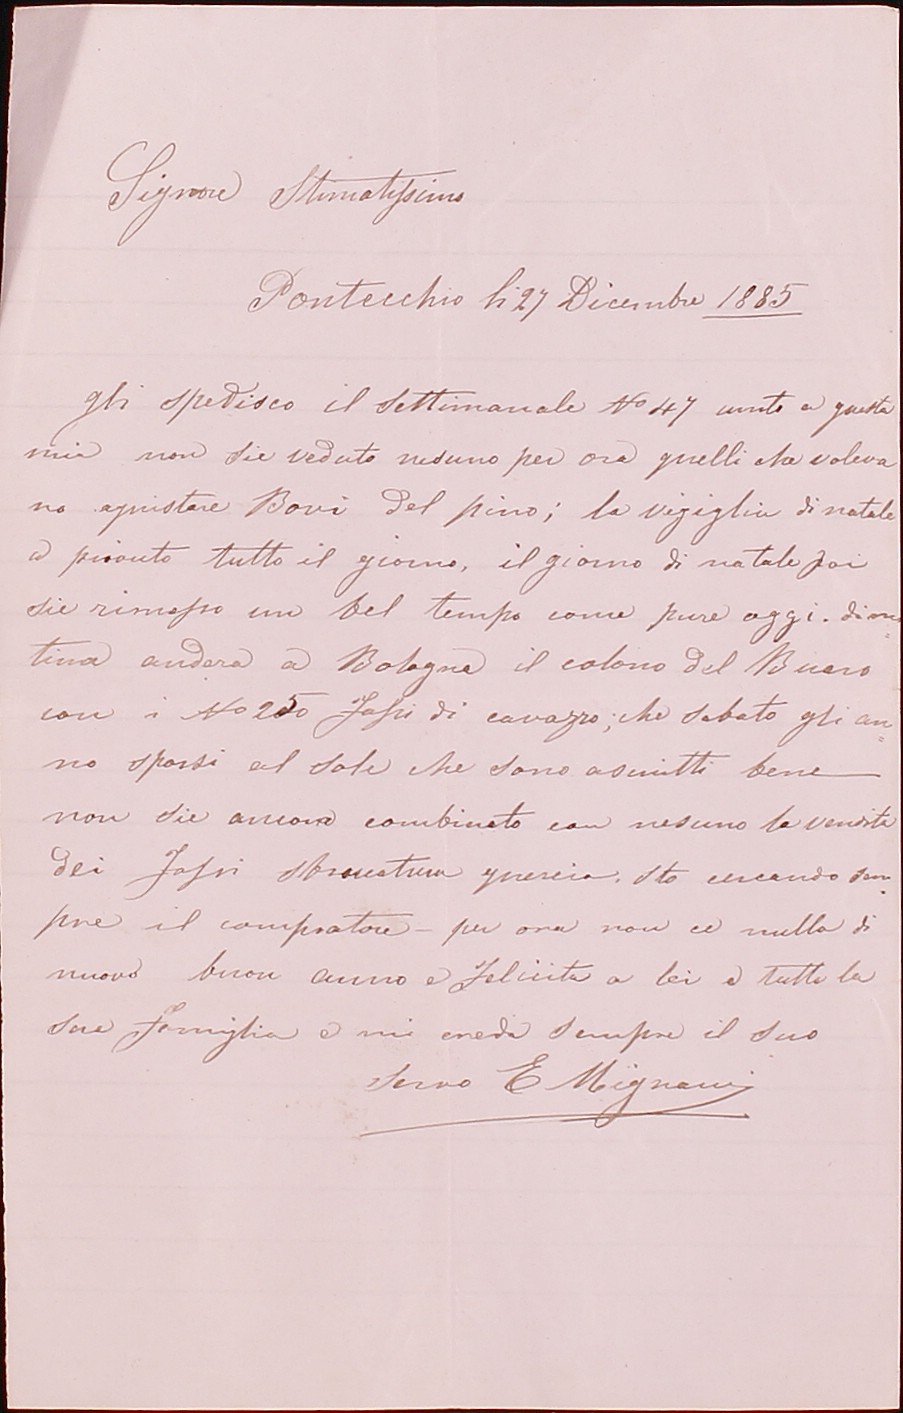 Signore Stimatissimo
Pontecchio li 27 Dicembre 1885
gli spedisco il settimanale No 47 unito a questa
mia non sie veduto nesuno per ora quelli che voleva
no aquistare Bovi del pino; la vigiglia di natale
a piouto tutto il giorno, il giorno di natale poi
sie rimesso un bel tempo come pure oggi. dima=
tina andera a Bologna il colono del
con i No 250 fassi di cavazzo; che sabato gli an=
no sparsi al sole che sono asciutti bene
non sie ancora combinato con nesuno la vendita
dei fassi quercia. sto cercando sem=
pre il compratore – per ora non ce nulla di
nuovo buon anno e felicita a lei e tutta la
sua famiglia e mi creda sempre il suo
servo E Mignani